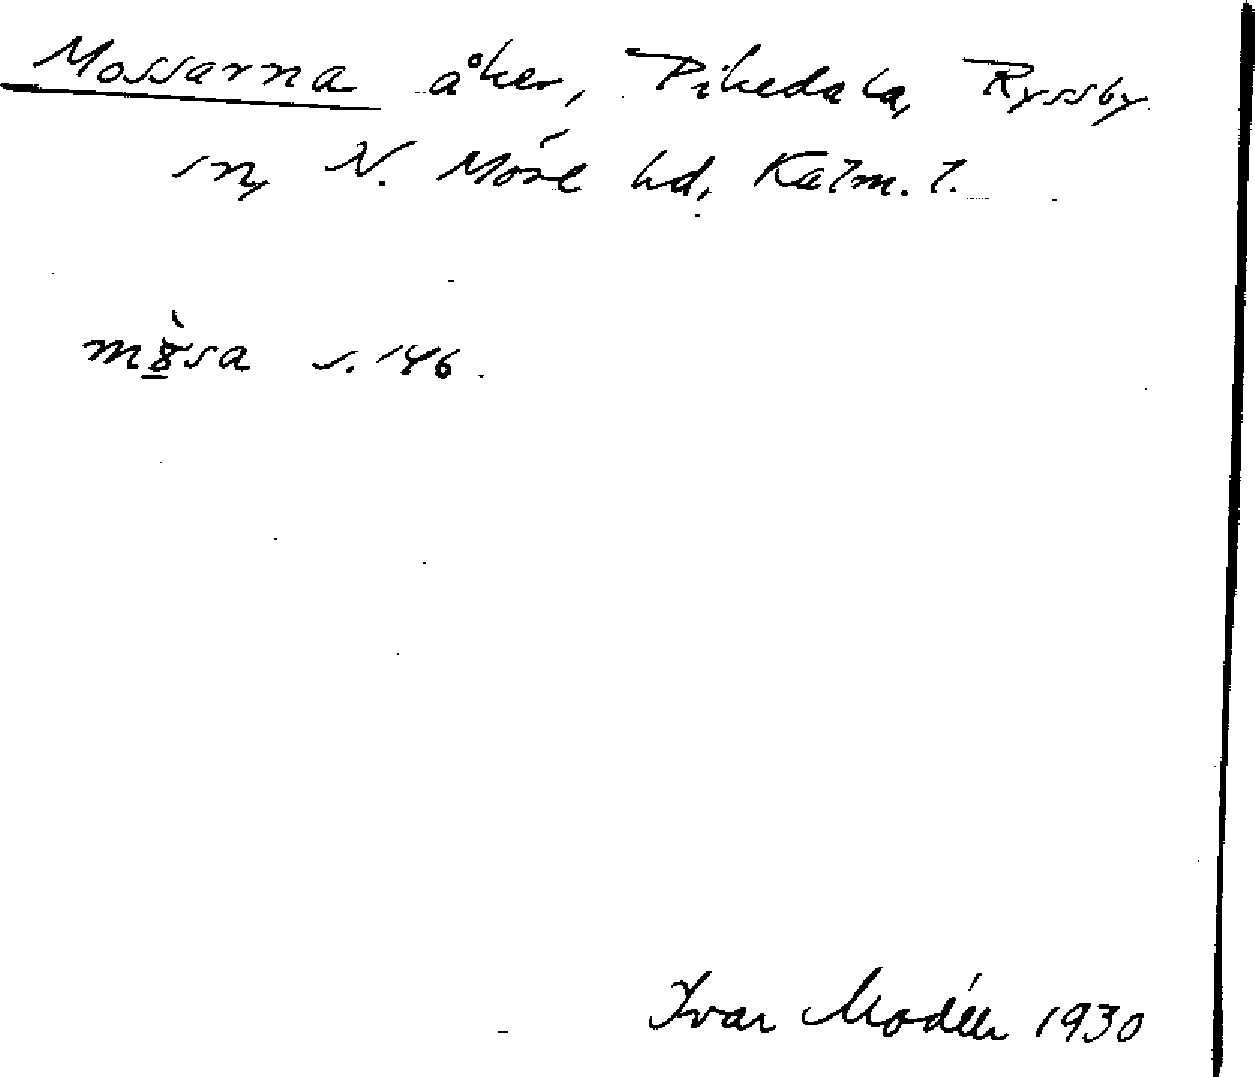 Mossarna åker, Pikedala, Ryssby
sn, N. Möre hd, Kalm. l.
s. 146.
Ivar Modéer 1930